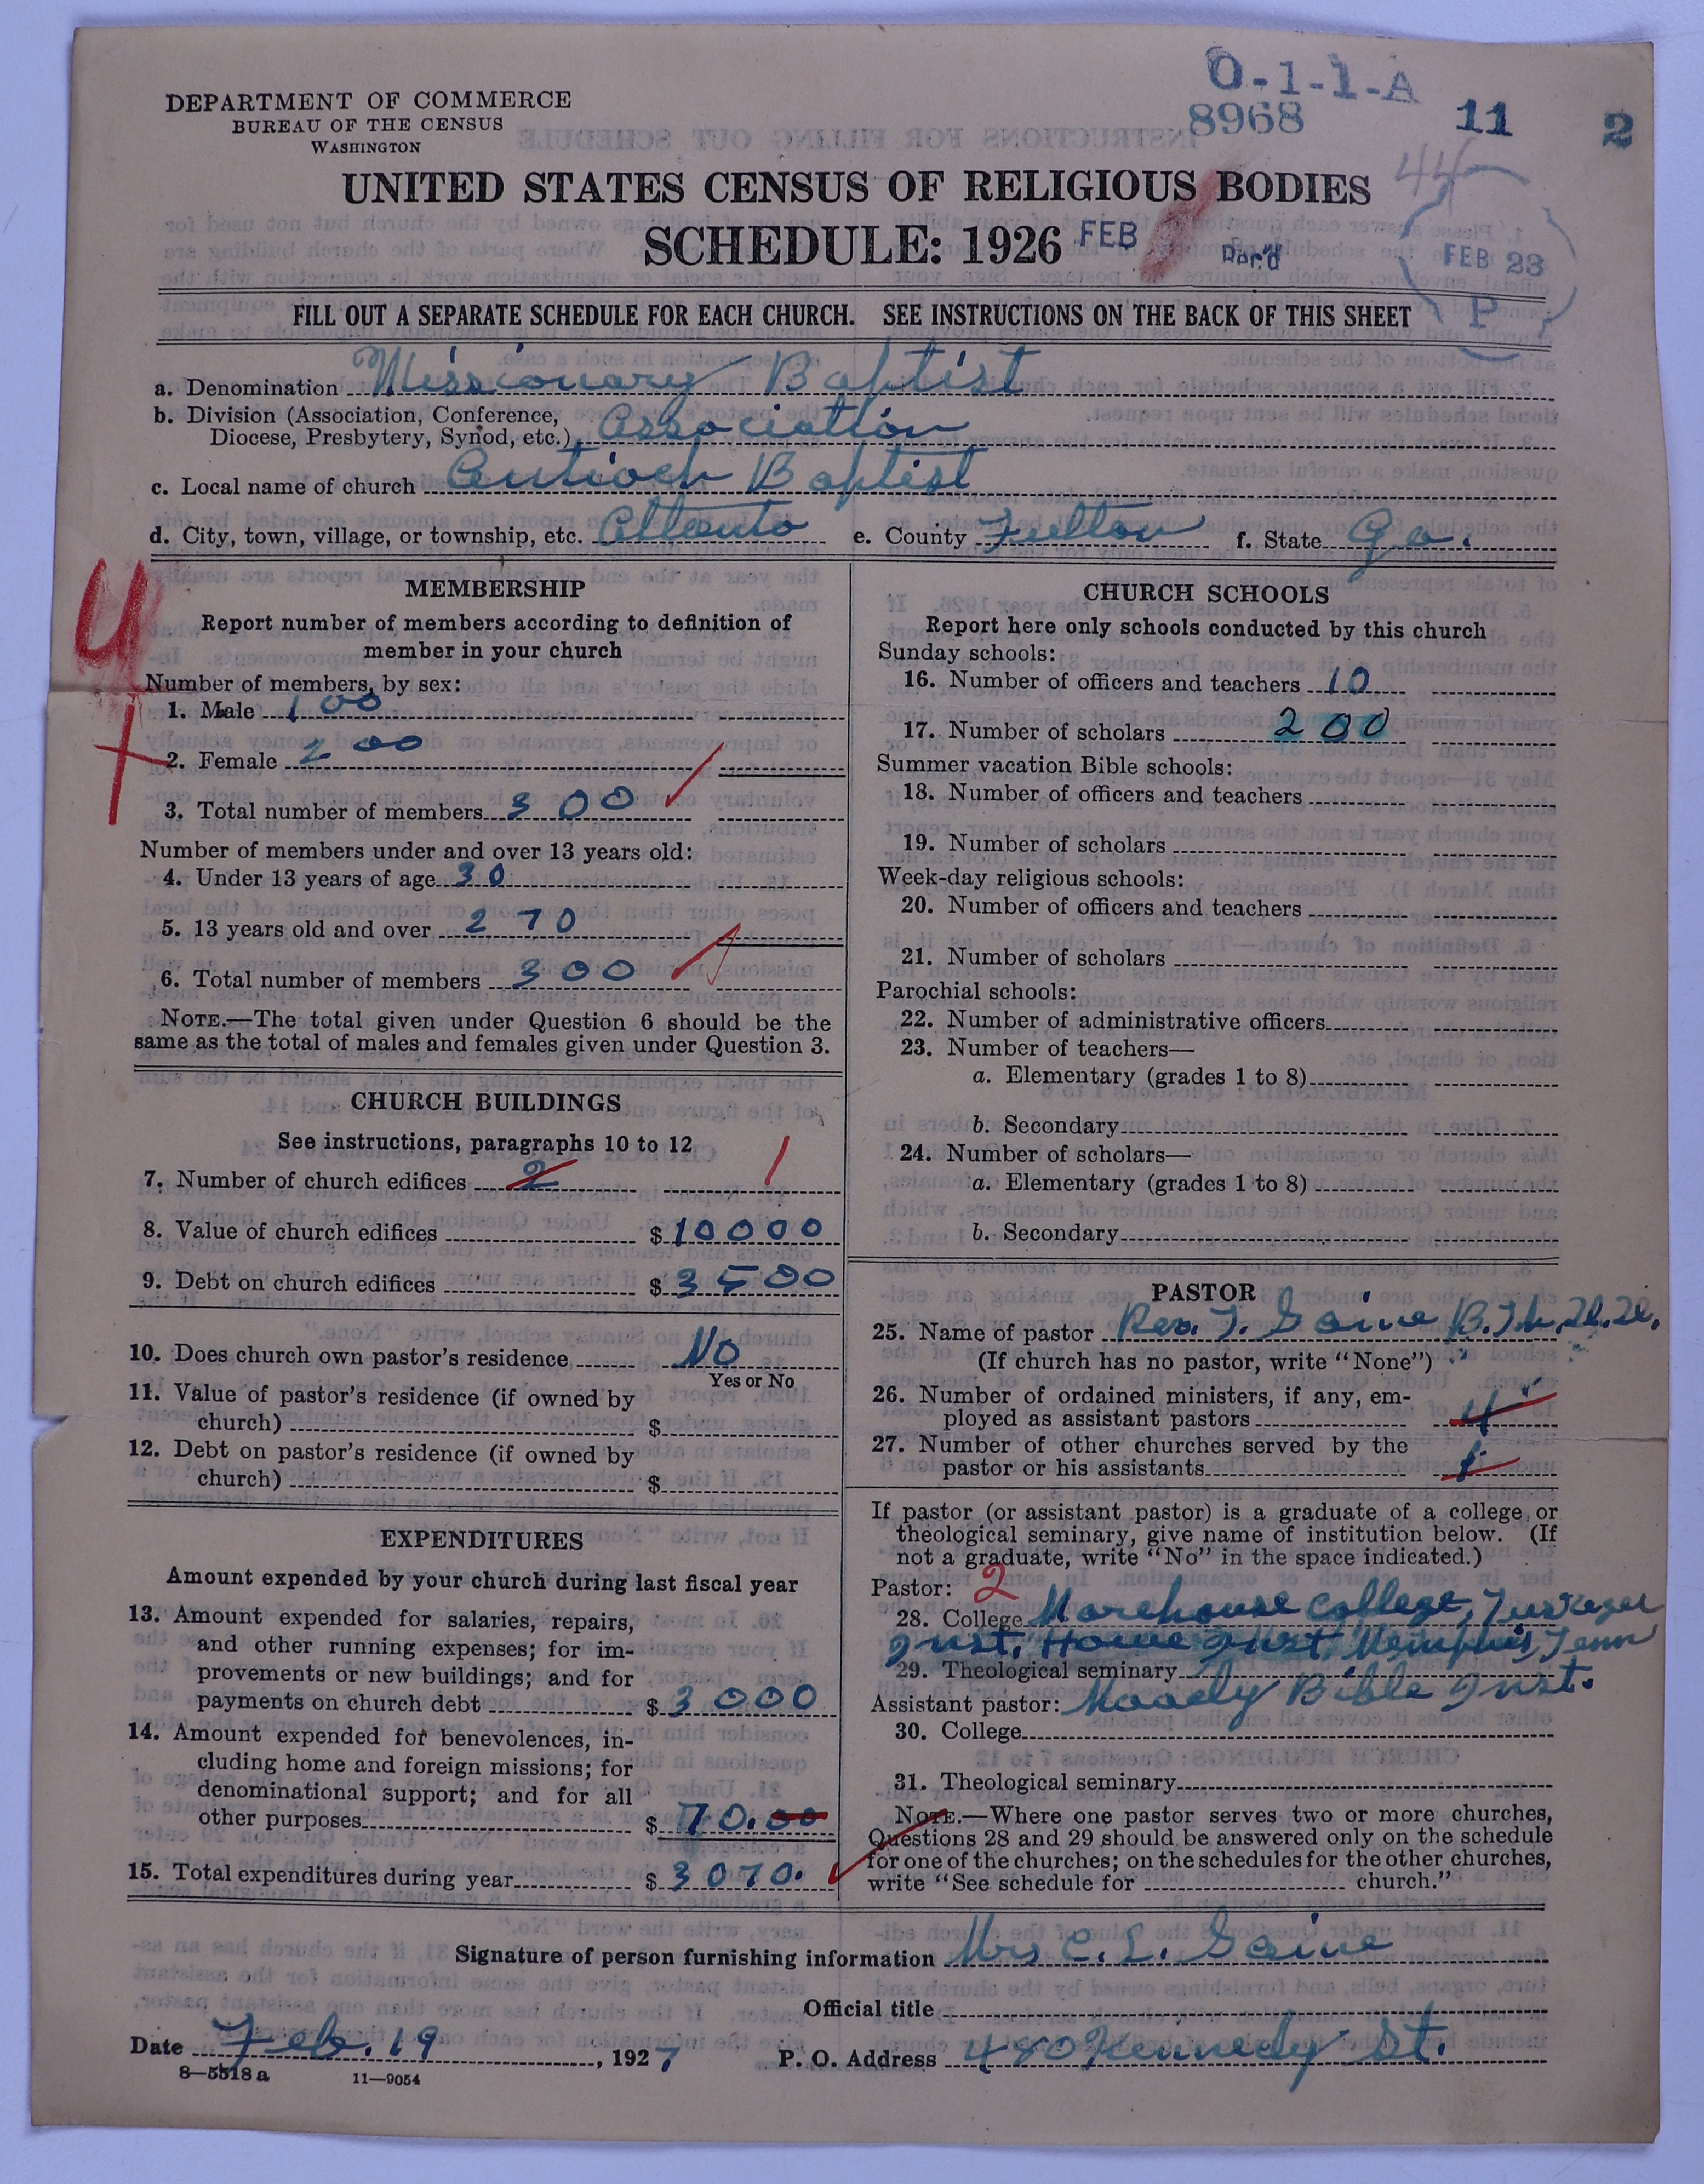 O-1-1-A
8968
11
2
44
DEPARTMENT OF COMMERCE
BUREAU OF THE CENSUS
WASHINGTON
UNITED STATES CENSUS OF RELIGIOUS BODIES
SCHEDULE: 1926
FEB
Rec'd
FEB 23
P
FILL OUT A SEPARATE SCHEDULE FOR EACH CHURCH. SEE INSTRUCTIONS ON THE BACK OF THIS SHEET
a. Denomination Missionary Baptist
b. Division (Association, Conference,
Diocese, Presbytery, Synod, etc.) Association
c. Local name of church Antioch Baptist
d. City, town, village, or township, etc. Atlanta e. County Fulton f. State Ga.
MEMBERSHIP
Report number of members according to definition of
member in your church
Number of members, by sex:
1. Male 100
2. Female 200
3. Total number of members 300
Number of members under and over 13 years old:
4. Under 13 years of age 30
5. 13 years old and over 270
6. Total number of members 300
NOTE.—The total given under Question 6 should be the
same as the total of males and females given under Question 3.
CHURCH BUILDINGS
See instructions, paragraphs 10 to 12
7. Number of church edifices 2 1
8. Value of church edifices $10000
9. Debt on church edifices $3500
10. Does church own pastor's residence No
Yes or No
11. Value of pastor's residence (if owned by
church) $
12. Debt on pastor's residence (if owned by
church) $
EXPENDITURES
Amount expended by your church during last fiscal year
13. Amount expended for salaries, repairs,
and other running expenses; for im-
provements or new buildings; and for
payments on church debt $3000
14. Amount expended for benevolences, in-
cluding home and foreign missions; for
denominational support; and for all
other purposes $70.00
15. Total expenditures during year $3070.
CHURCH SCHOOLS
Report here only schools conducted by this church
Sunday schools:
16. Number of officers and teachers 10
17. Number of scholars 200
Summer vacation Bible schools:
18. Number of officers and teachers
19. Number of scholars
Week-day religious schools:
20. Number of officers and teachers
21. Number of scholars
Parochial schools:
22. Number of administrative officers
23. Number of teachers—
a. Elementary (grades 1 to 8)
b. Secondary
24. Number of scholars—
a. Elementary (grades 1 to 8)
b. Secondary
PASTOR
25. Name of pastor Rev. T. Saine B.Th.
(If church has no pastor, write "None")
26. Number of ordained ministers, if any, em-
ployed as assistant pastors 4
27. Number of other churches served by the
pastor or his assistants 1
If pastor (or assistant pastor) is a graduate of a college or
theological seminary, give name of institution below. (If
not a graduate, write "No" in the space indicated.)
Pastor: 2
28. College Morehouse College, Tuskegee
Inst. Howe Inst. Memphis, Tenn
29. Theological seminary
Moody Bible Inst.
Assistant pastor:
30. College
31. Theological seminary
NOTE.—Where one pastor serves two or more churches,
Questions 28 and 29 should be answered only on the schedule
for one of the churches; on the schedules for the other churches,
write "See schedule for church."
Signature of person furnishing information Mrs C. L. Saine
Official title
Date Feb. 19, 1927 P. O. Address 480 Kennedy St.
8—5518 a 11—9054